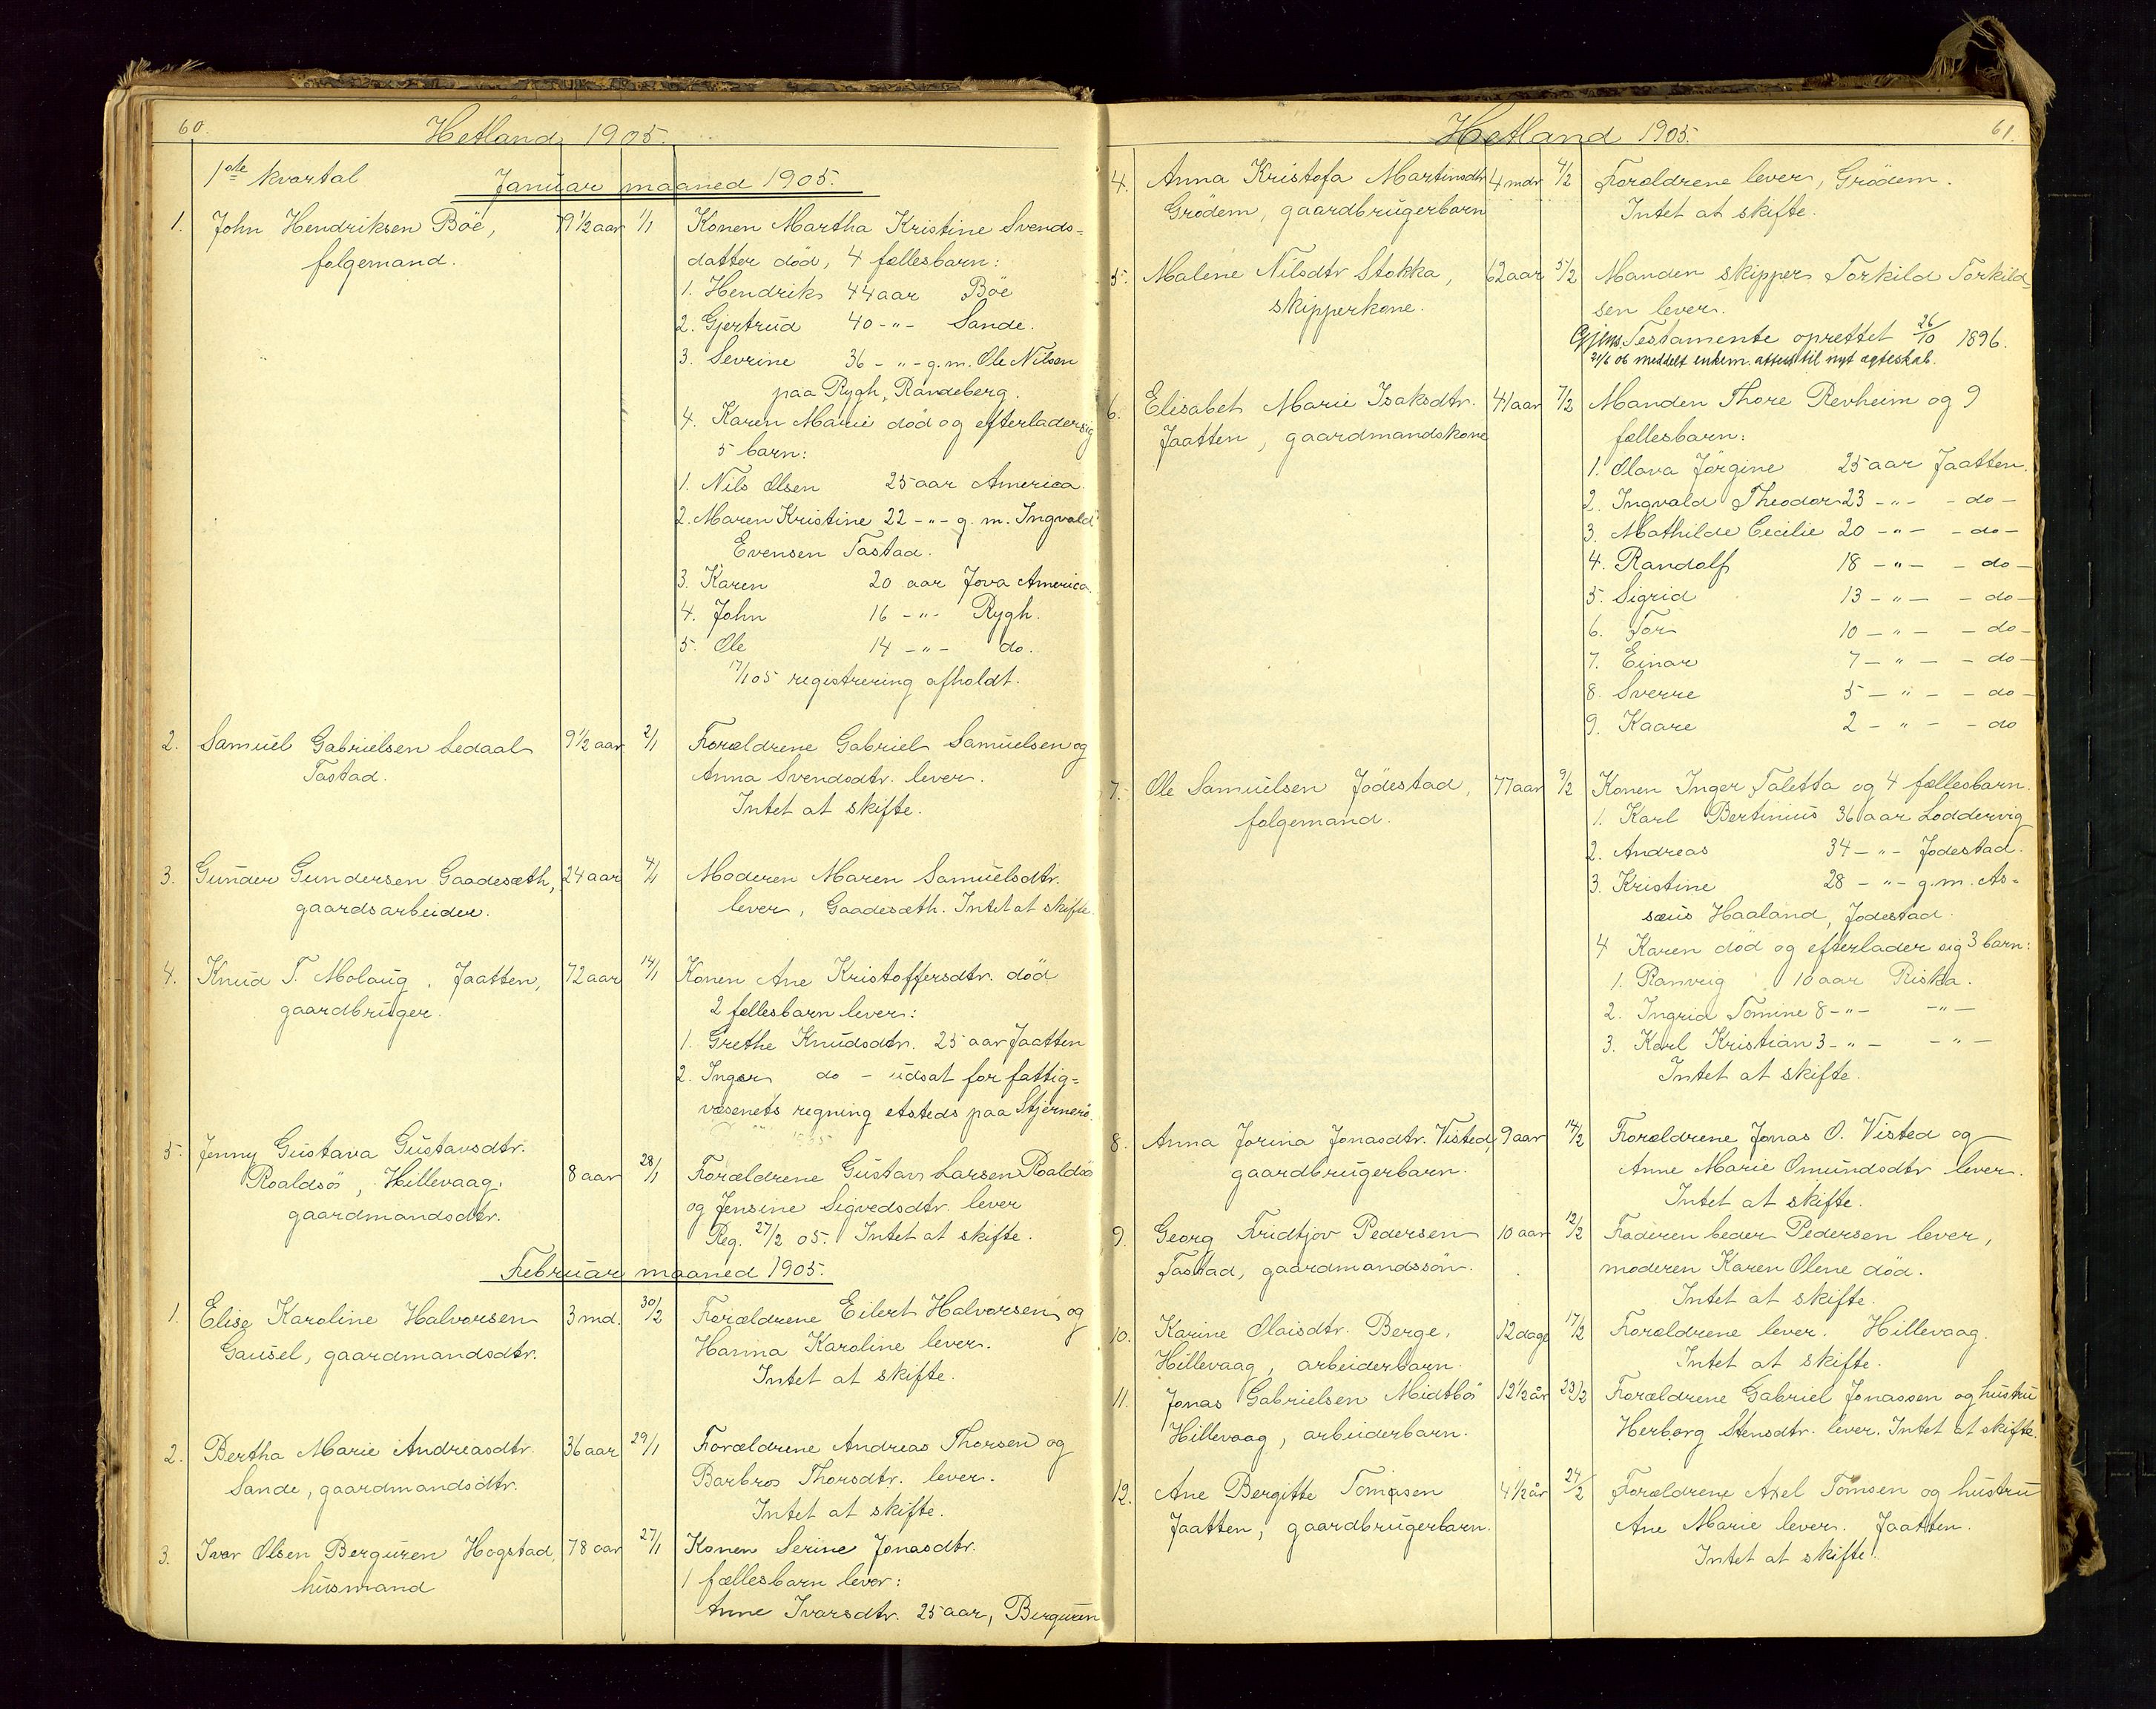 60.
Hetland 1905.
1ste kvartal
Januar maaned 1905.
1. John Hendriksen Böe, 79 1/2 aar 1/1 Konen Martha Kristine Svends=
folgemand. datter död, 4 fællesbarn:
1. Hendrik 44 aar Böe
2. Gjertrud 40 -"- Sande.
3. Sevrine 36 -"- g.m. Ole Nilsen
paa Rygh, Randeberg.
4. Karen Marie død og efterlader sig
5 barn:
1. Nils Olsen 25 aar America.
2. Maren Kristine 22 -"- g. m. Ingvald
Evensen Tastad.
3. Karen 20 aar Jova America.
4. John 16 -"- Rygh.
5. Ole 14 -"- do.
17/1 05 registrering afholdt.
2. Samuel Gabrielsen Ledaal 9 1/2 aar 2/1 Forældrene Gabriel Samuelsen og
Tastad. Anna Svendsdtr. lever.
Intet at skifte.
3. Gunder Gundersen Gaadesæth, 24 aar 4/1 Moderen Maren Samuelsdtr.
gaardsarbeider. lever, Gaadesæth. Intet at skifte.
4. Knud T. Molaug, Jaatten, 72 aar 14/1 Konen Ane Kristoffersdtr. död
gaardbruger. 2 fællesbarn lever:
1. Grethe Knudsdtr. 25 aar Jaatten
2. Inger do - udsat for fattig=
væsenets regning etsteds paa Stjernerö.
5. Jenny Gustava Gustavsdtr.
Roaldsö, Hillevaag. 8 aar 28/1 Forældrene Gustav Larsen Roaldsö
gaardmandsdtr. og Jensine Sigvedsdtr. lever
Reg. 27/2 05. Intet at skifte.
Februar maaned 1905.
1. Elise Karoline Halvorsen 3 md. 30/2 Forældrene Eilert Halvorsen og
Gausel, gaardmandsdtr. Hanna Karoline lever.
Intet at skifte.
2. Bertha Marie Andreasdtr. 36 aar 29/1 Forældrene Andreas Thorsen og
Sande, gaardmandsdtr. Barbro Thorsdtr. lever.
Intet at skifte.
3. Ivar Olsen Berguren Hogstad, 78 aar 27/1 Konen Serine Jonasdtr.
husmand 1 fællesbarn lever:
Anne Ivarsdtr. 25 aar, Berguren
Hetland 1905.
61.
4. Anna Kristofa Martinsdtr 4 mdr 4/2 Forældrene lever, Grödem.
Grödem, gaardbrugerbarn Intet at skifte.
5. Malene Nilsdtr Stokka, 62 aar 5/2 Manden skipper Torkild Torkild=
skipperkone. sen lever.
Gjens. Testamente oprettet 26/10 1896.
21/6 06 meddelt enkem. attest til nyt ægteskab.
6. Elisabet Marie Isaksdtr. 41 aar 7/2 Manden Thore Revheim og 9
Jaatten, gaardmandskone fællesbarn:
1. Olava Jörgine 25 aar Jaatten.
2. Ingvald Theodor 23 -"- - do -
3. Mathilde Cecilie 20 -"- - do -
4. Randolf 18 -"- - do -
5. Sigrid 13 -"- - do -
6. Tor 10 -"- - do -
7. Einar 7 -"- - do -
8. Sverre 5 -"- - do -
9. Kaare 2 -"- - do
7. Ole Samuelsen Jödestad, 77 aar 9/2 Konen Inger Taletta og 4 fællesbarn.
folgemand. 1. Karl Bertinius 36 aar Loddervig
2. Andreas 34 -"- Jodestad.
3. Kristine 28 -"- g.m. As=
sæus Haaland, Jodestad.
4 Karen död og efterlader sig 3 barn:
1. Ranveig 10 aar Riska.
2. Ingrid Tomine 8 -"- -"-
3. Karl Kristian 3 -"- -"-
Intet at skifte.
8. Anna Jorina Jonasdtr. Visted, 9 aar 14/2 Forældrene Jonas O. Visted og
gaardbrugerbarn. Anne Marie Omundsdtr lever.
Intet at skifte.
9. Georg Fridtjov Pedersen 10 aar 12/2 Faderen Peder Pedersen lever,
Tastad, gaardmandssön. moderen Karen Olene död.
Intet at skifte.
10. Karine Olaisdtr. Berge, 12 dage 17/2 Forældrene lever. Hillevaag.
Hillevaag, arbeiderbarn. Intet at skifte.
11. Jonas Gabrielsen Midtbö 12 1/2 år 23/2 Forældrene Gabriel Jonassen og hustru
Hillevaag, arbeiderbarn. Herborg Stensdtr. lever. Intet at skifte.
12. Ane Bergitte Tomasen 4 1/2 år 24/2 Forældrene Axel Tomsen og hustru
Jaatten, gaardbrugerbarn. Ane Marie lever. Jaatten.
Intet at skifte.